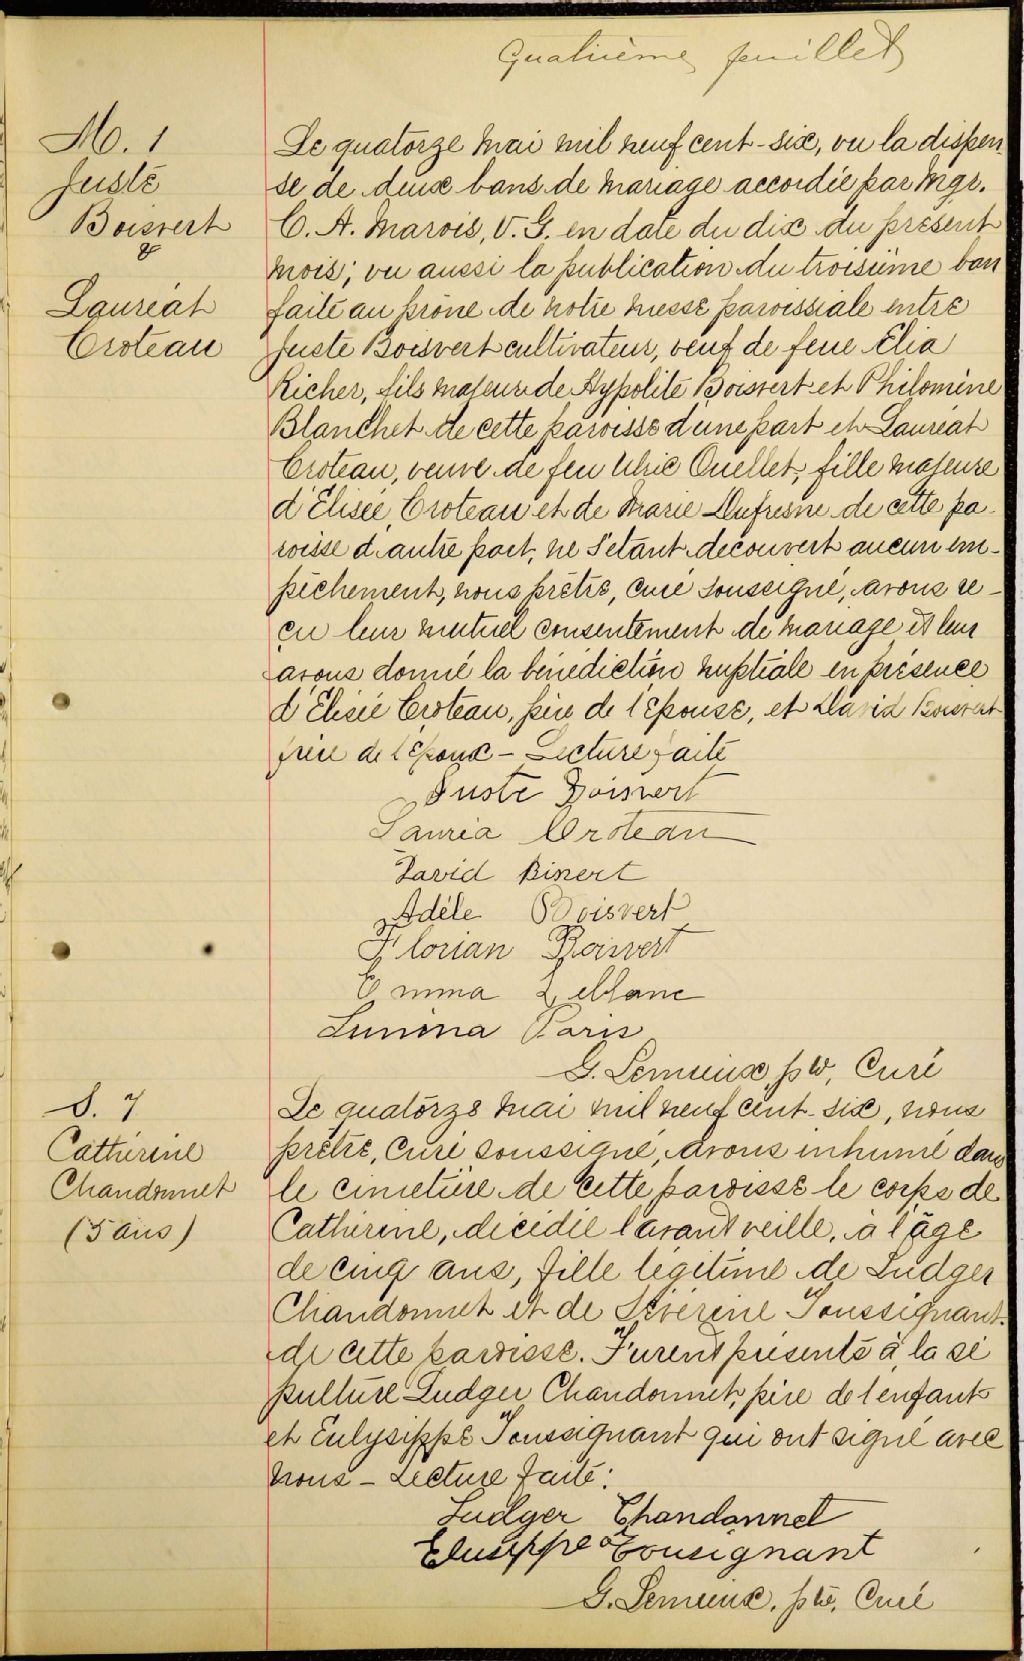 Quatrième feuillet
M. 1
Juste
Boisvert
&
Lauréat
Croteau
Le quatorze mai mil neuf cent-six, vu la dispen-
se de deux bans de mariage accordée par Mgr.
C. A. Marois, V. G. en date du dix du présent
mois; vu aussi la publication du troisième ban
faite au prône de notre messe paroissiale entre
Juste Boisvert cultivateur, veuf de feue Elia
Richer, fils majeur de Hypolite Boisvert et Philomène
Blanchet de cette paroisse d'une part et Lauréat
Croteau, veuve de feu Ulric Ouellet, fille majeure
d'Elisée Croteau et de Marie Dufresne de cette pa-
roisse d'autre part, ne s'étant découvert aucun em-
pêchement, nous prêtre, curé soussigné, avons re-
çu leur mutuel consentement de mariage et leur
avons donné la bénédiction nuptiale en présence
d'Elisée Croteau, père de l'épouse, et David Boisvert
frère de l'époux - Lecture faite
Juste Boisvert
Lauréa Croteau
David Bisvert
Adèle Boisvert
Florian Boisvert
Emma Leblanc
Lumina Paris
G. Lemieux, ptre, Curé
S. 7
Catherine
Chandonnet
(5 ans)
Le quatorze mai mil neuf cent-six, nous
prêtre, curé soussigné, avons inhumé dans
le cimetière de cette paroisse le corps de
Catherine, décédée l'avant veille, à l'âge
de cinq ans, fille légitime de Ludger
Chandonnet et de Sévérine Toussignant
de cette paroisse. Furent présents à la sé
pulture Ludger Chandonnet, père de l'enfant
et Eulysippe Toussignant qui ont signé avec
nous - Lecture faite:
Ludger Chandonnet
Elusippe Tousignant
G. Lemieux, ptre, Curé